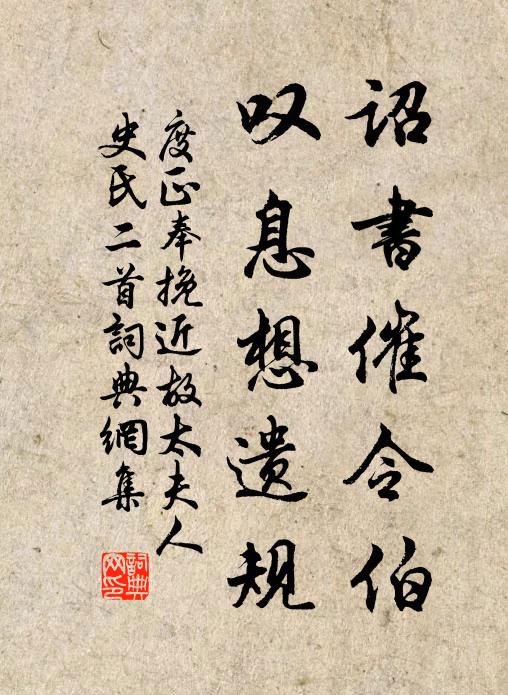 詔書催令伯
叹息想遺規
度正奉挽近故太夫人
史氏二首詞典網集
詞典网印